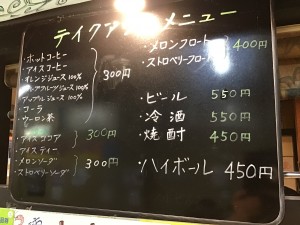 テイクアウトメニュー
・ホットコーヒー
・アイスコーヒー
・オレンジジュース 100%
・グレープフルーツジュース 100%
・アップルジュース 100%
・コーラ
・ウーロン茶
300円
・アイスココア
・アイスティー
300円
・メロンソーダ
・ストロベリーソーダ
300円
・メロンフロート
・ストロベリーフロート
400円
・ビール 550円
・冷酒 550円
・焼酎 450円
・ハイボール 450円